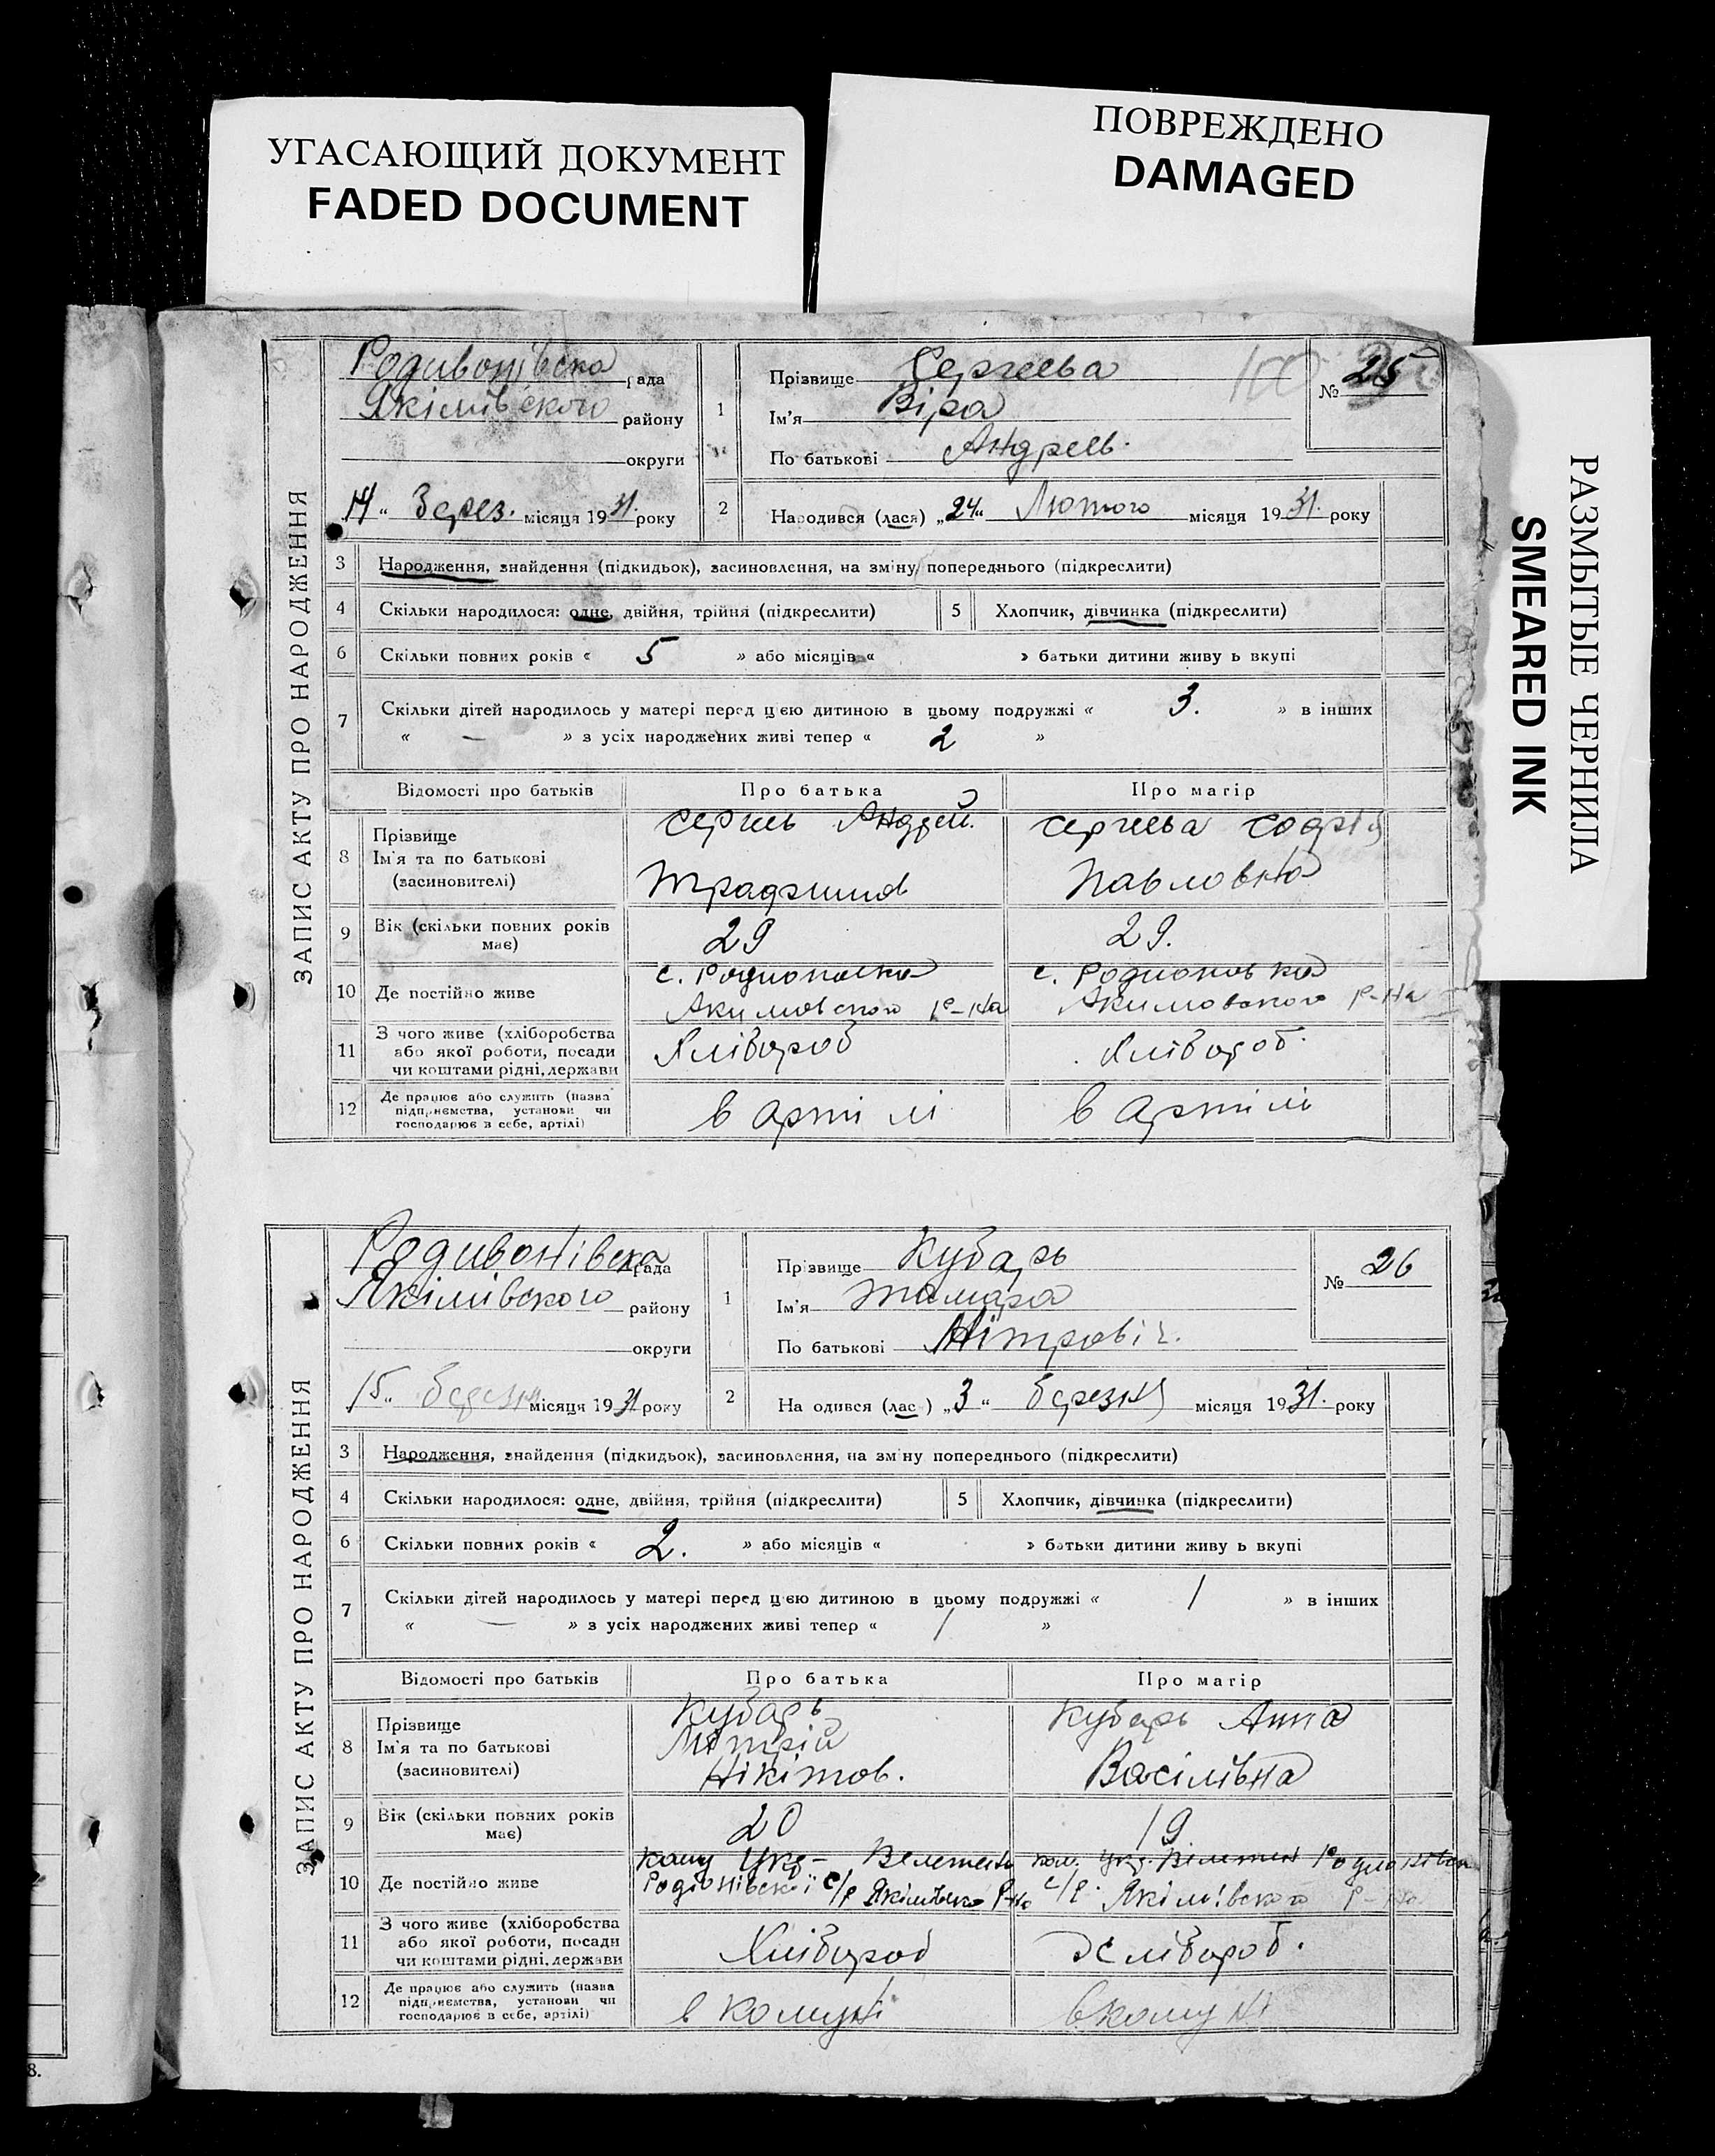 УГАСАЮЩИЙ ДОКУМЕНТ
FADED DOCUMENT
ПОВРЕЖДЕНО
DAMAGED
РАЗМЫТЫЕ ЧЕРНИЛА
SMEARED INK
ЗАПИС АКТУ ПРО НАРОДЖЕННЯ
Родивонівска рада
Якімівского району
округи
14 " Берез. місяця 1931. року
1 Прізвище Сергєєва
Ім'я Віра
По батькові Андреев.
№ 25
2 Народився (лася) „24" Лютого місяця 1931. року
3 Народження, знайдення (підкидьок), засиновлення, на зміну попереднього (підкреслити)
4 Скільки народилося: одне, двійня, трійня (підкреслити) 5 Хлопчик, дівчинка (підкреслити)
6 Скільки повних років « 5 » або місяців « » батьки дитини живу ь вкупі
7 Скільки дітей народилось у матері перед цією дитиною в цьому подружжі « 3. » в інших
« — » з усіх народжених живі тепер « 2 »
Відомості про батьків Про батька Про матір
8 Прізвище
Ім'я та по батькові
(засиновителі)
Андрей.
Сергеева Софія
Павловна
9 Вік (скільки повних років має) 29 29.
10 Де постійно живе
с. Родионовка
Акимовского р-на
с. Родионовка
Акимовского р-на
11 З чого живе (хліборобства
або якої роботи, посади
чи коштами рідні, держави
Хлібороб
Хлібороб.
12 Де працює або служить (назва
підприємства, установи чи
господарює в себе, артілі)
в артілі
в артілі
ЗАПИС АКТУ ПРО НАРОДЖЕННЯ
Родивонівска рада
Якімівского району
округи
15 " березн місяця 1931 року
1 Прізвище Кубарь
Ім'я Тамара
По батькові Мітровіч.
№ 26
2 На одився (лас ) „3 " березня місяця 1931. року
3 Народження, знайдення (підкидьок), засиновлення, на зміну попереднього (підкреслити)
4 Скільки народилося: одне, двійня, трійня (підкреслити) 5 Хлопчик, дівчинка (підкреслити)
6 Скільки повних років « 2. » або місяців « » батьки дитини живу ь вкупі
7 Скільки дітей народилось у матері перед цією дитиною в цьому подружжі « 1 » в інших
« — » з усіх народжених живі тепер « 1 »
Відомості про батьків Про батька Про матір
8 Прізвище
Ім'я та по батькові
(засиновителі)
Кубарь
Мітрій
Нікітов.
Кубарь Анна
Васілівна
9 Вік (скільки повних років має) 20 19
10 Де постійно живе
Родіонівскої с/р Якімівско р-на
с/р. Якімівского р-на
11 З чого живе (хліборобства
або якої роботи, посади
чи коштами рідні, держави
Хлібороб
Хлібороб.
12 Де працює або служить (назва
підприємства, установи чи
господарює в себе, артілі)
в комуні
в комуні
8.